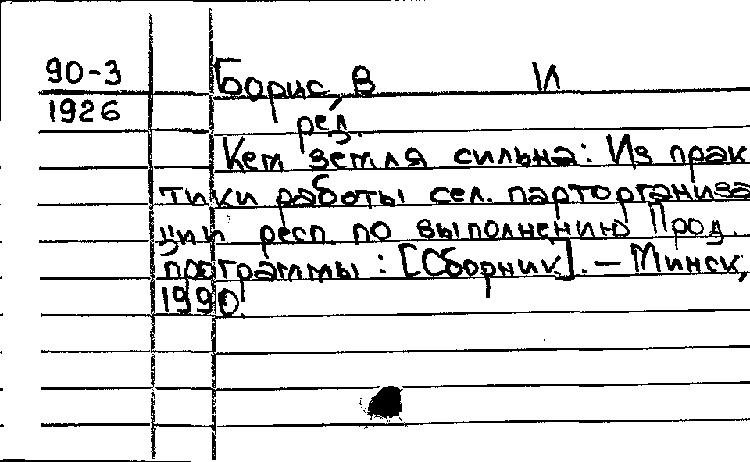 90-3
1926
Борис, В И
ред.
Кем земля сильна: Из прак
тики работы сел. парторганиза
ции респ. по выполнению Прод.
программы: [Сборник]. — Минск,
1990.